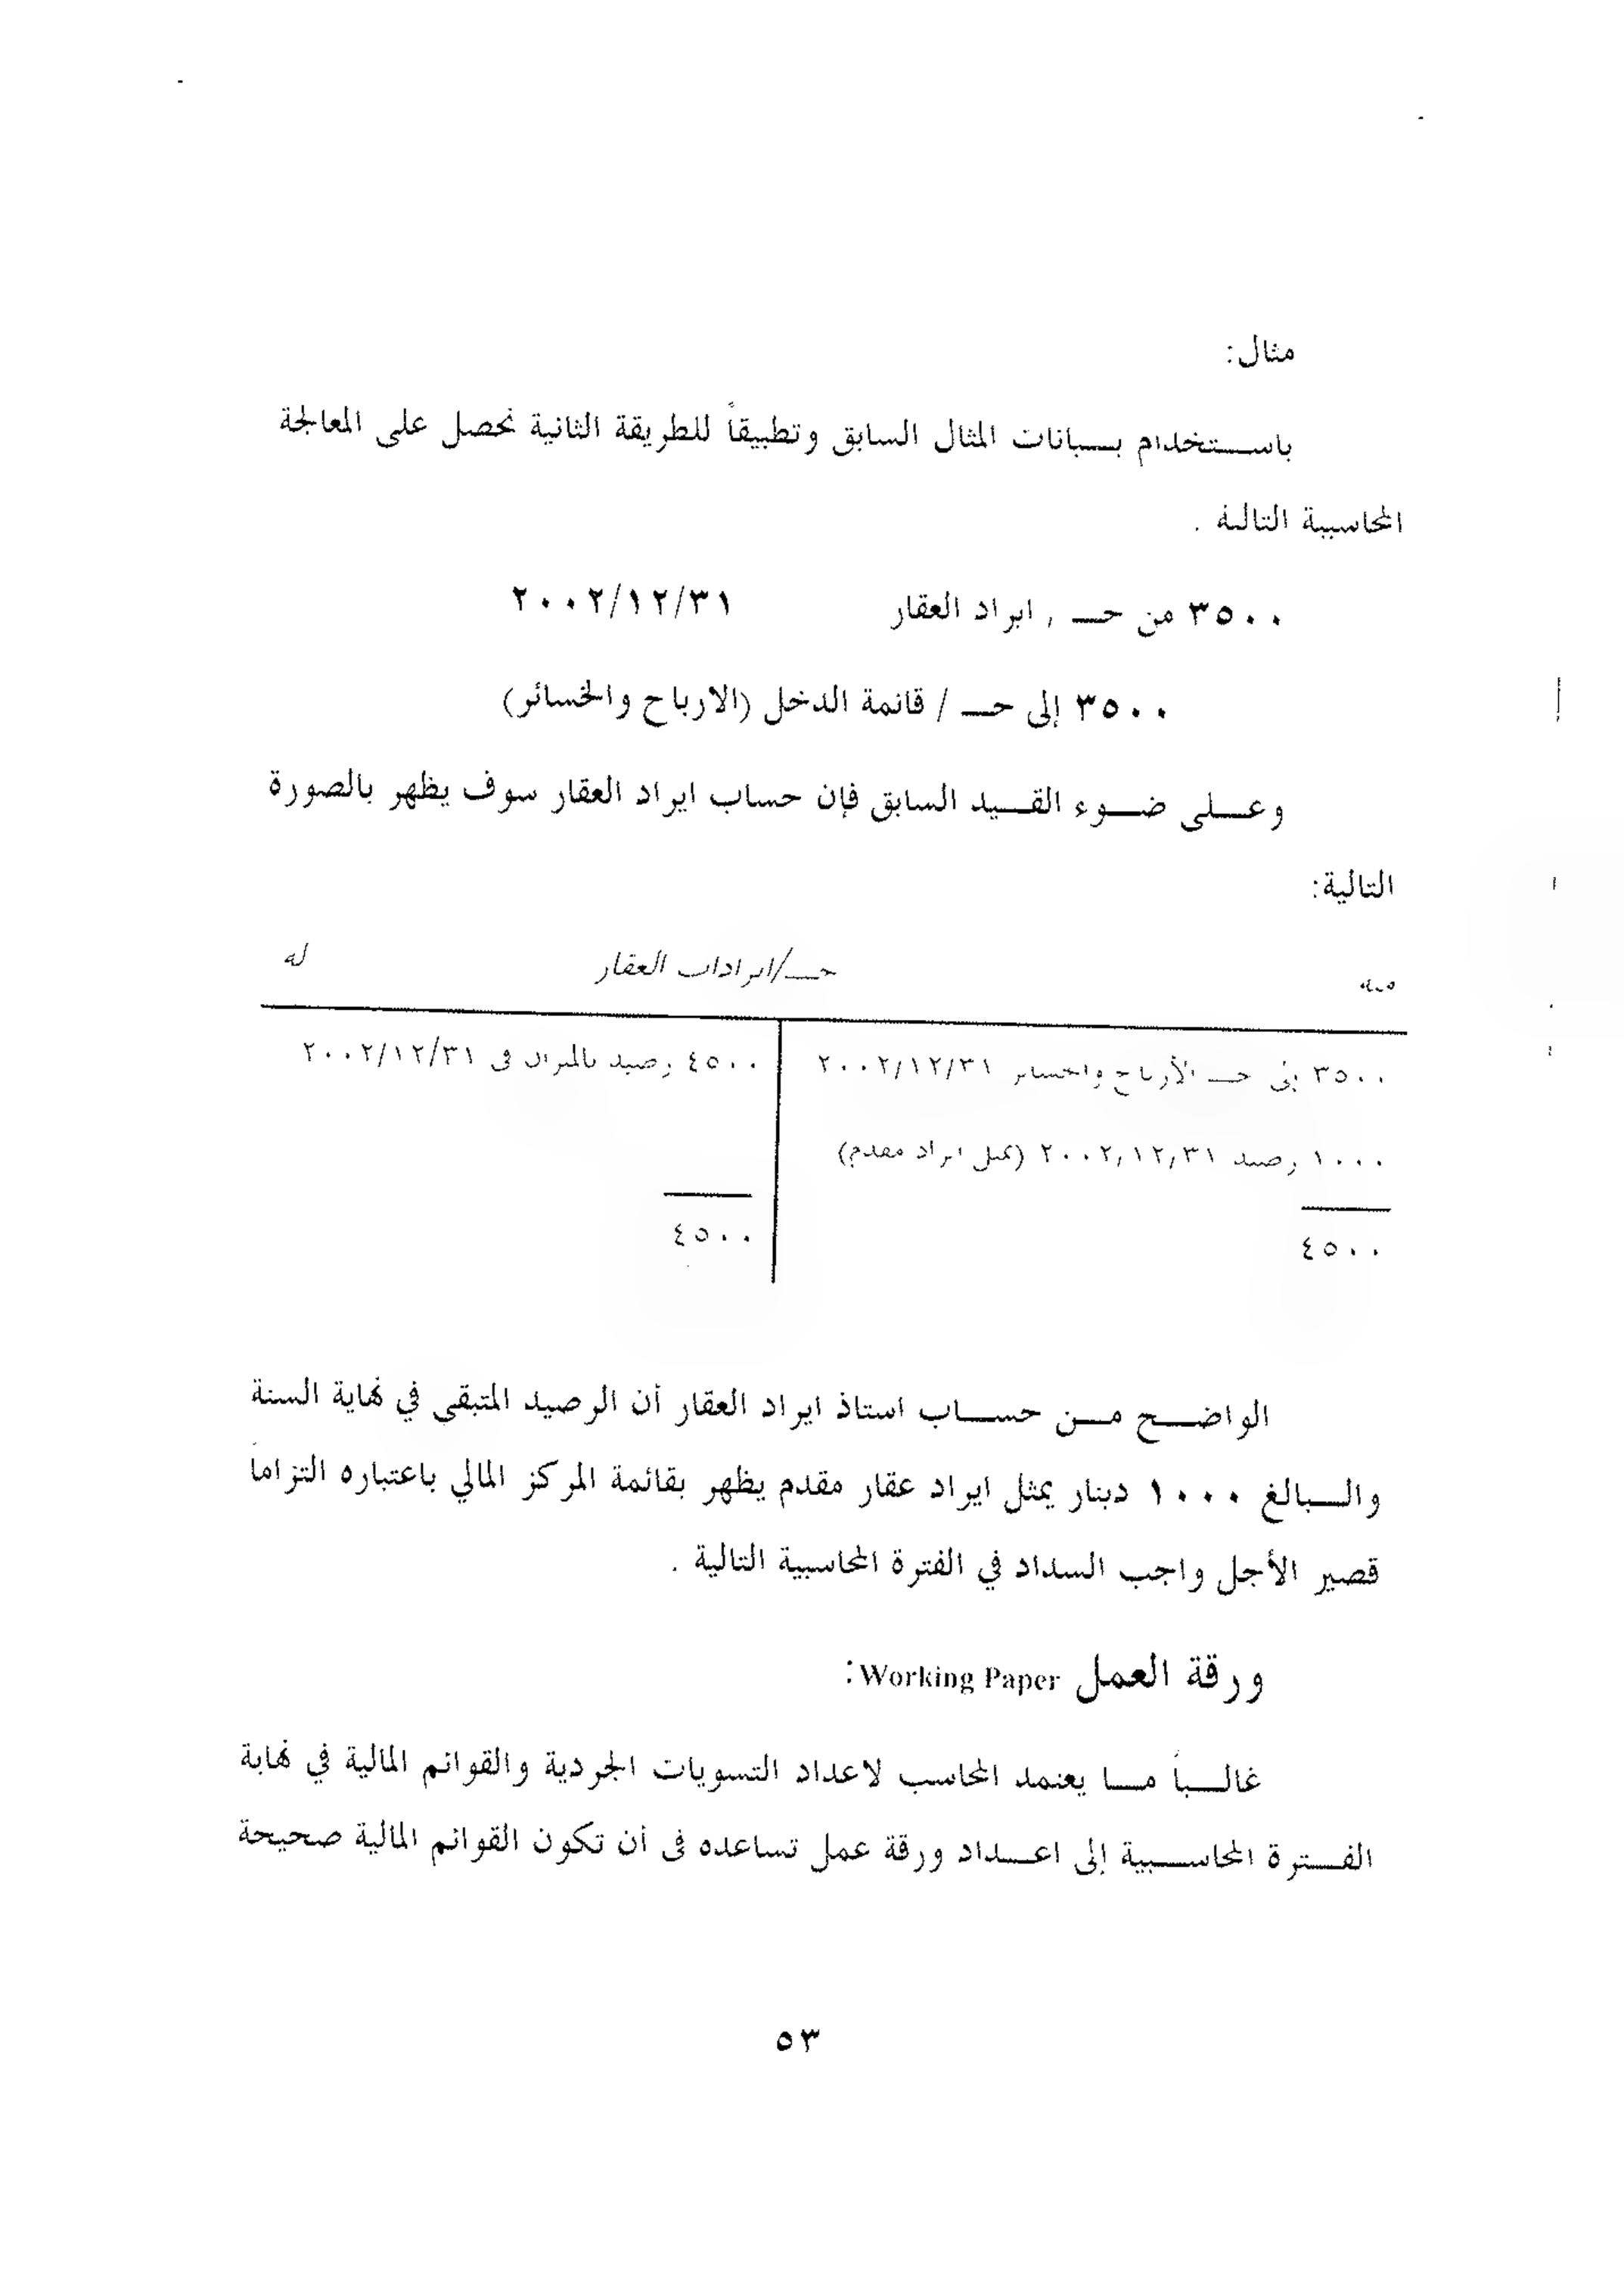 مثال:
باستخدام بيانات المثال السابق وتطبيقاً للطريقة الثانية نحصل على المعالجة
المحاسبية التالية .
٣٥٠٠ من حـ / ايراد العقار ٢٠٠٢/١٢/٣١
٣٥٠٠ إلى حـ / قائمة الدخل (الارباح والخسائر)
وعلى ضوء القيد السابق فإن حساب ايراد العقار سوف يظهر بالصورة
التالية:
منه حـ/ايرادات العقار له
٣٥٠٠ إلى حـ الأرباح والخسائر ٢٠٠٢/١٢/٣١ ٤٥٠٠ رصيد بالميزان في ٢٠٠٢/١٢/٣١
١٠٠٠ رصيد ٢٠٠٢/١٢/٣١ (يمثل ايراد مقدم)
٤٥٠٠ ٤٥٠٠
الواضح من حساب استاذ ايراد العقار أن الرصيد المتبقى في نهاية السنة
والبالغ ١٠٠٠ دينار يمثل ايراد عقار مقدم يظهر بقائمة المركز المالي باعتباره التزاماً
قصير الأجل واجب السداد في الفترة المحاسبية التالية .
ورقة العمل Working Paper:
غالباً ما يعتمد المحاسب لاعداد التسويات الجردية والقوائم المالية في نهاية
الفترة المحاسبية إلى اعداد ورقة عمل تساعده فى أن تكون القوائم المالية صحيحة
٥٣